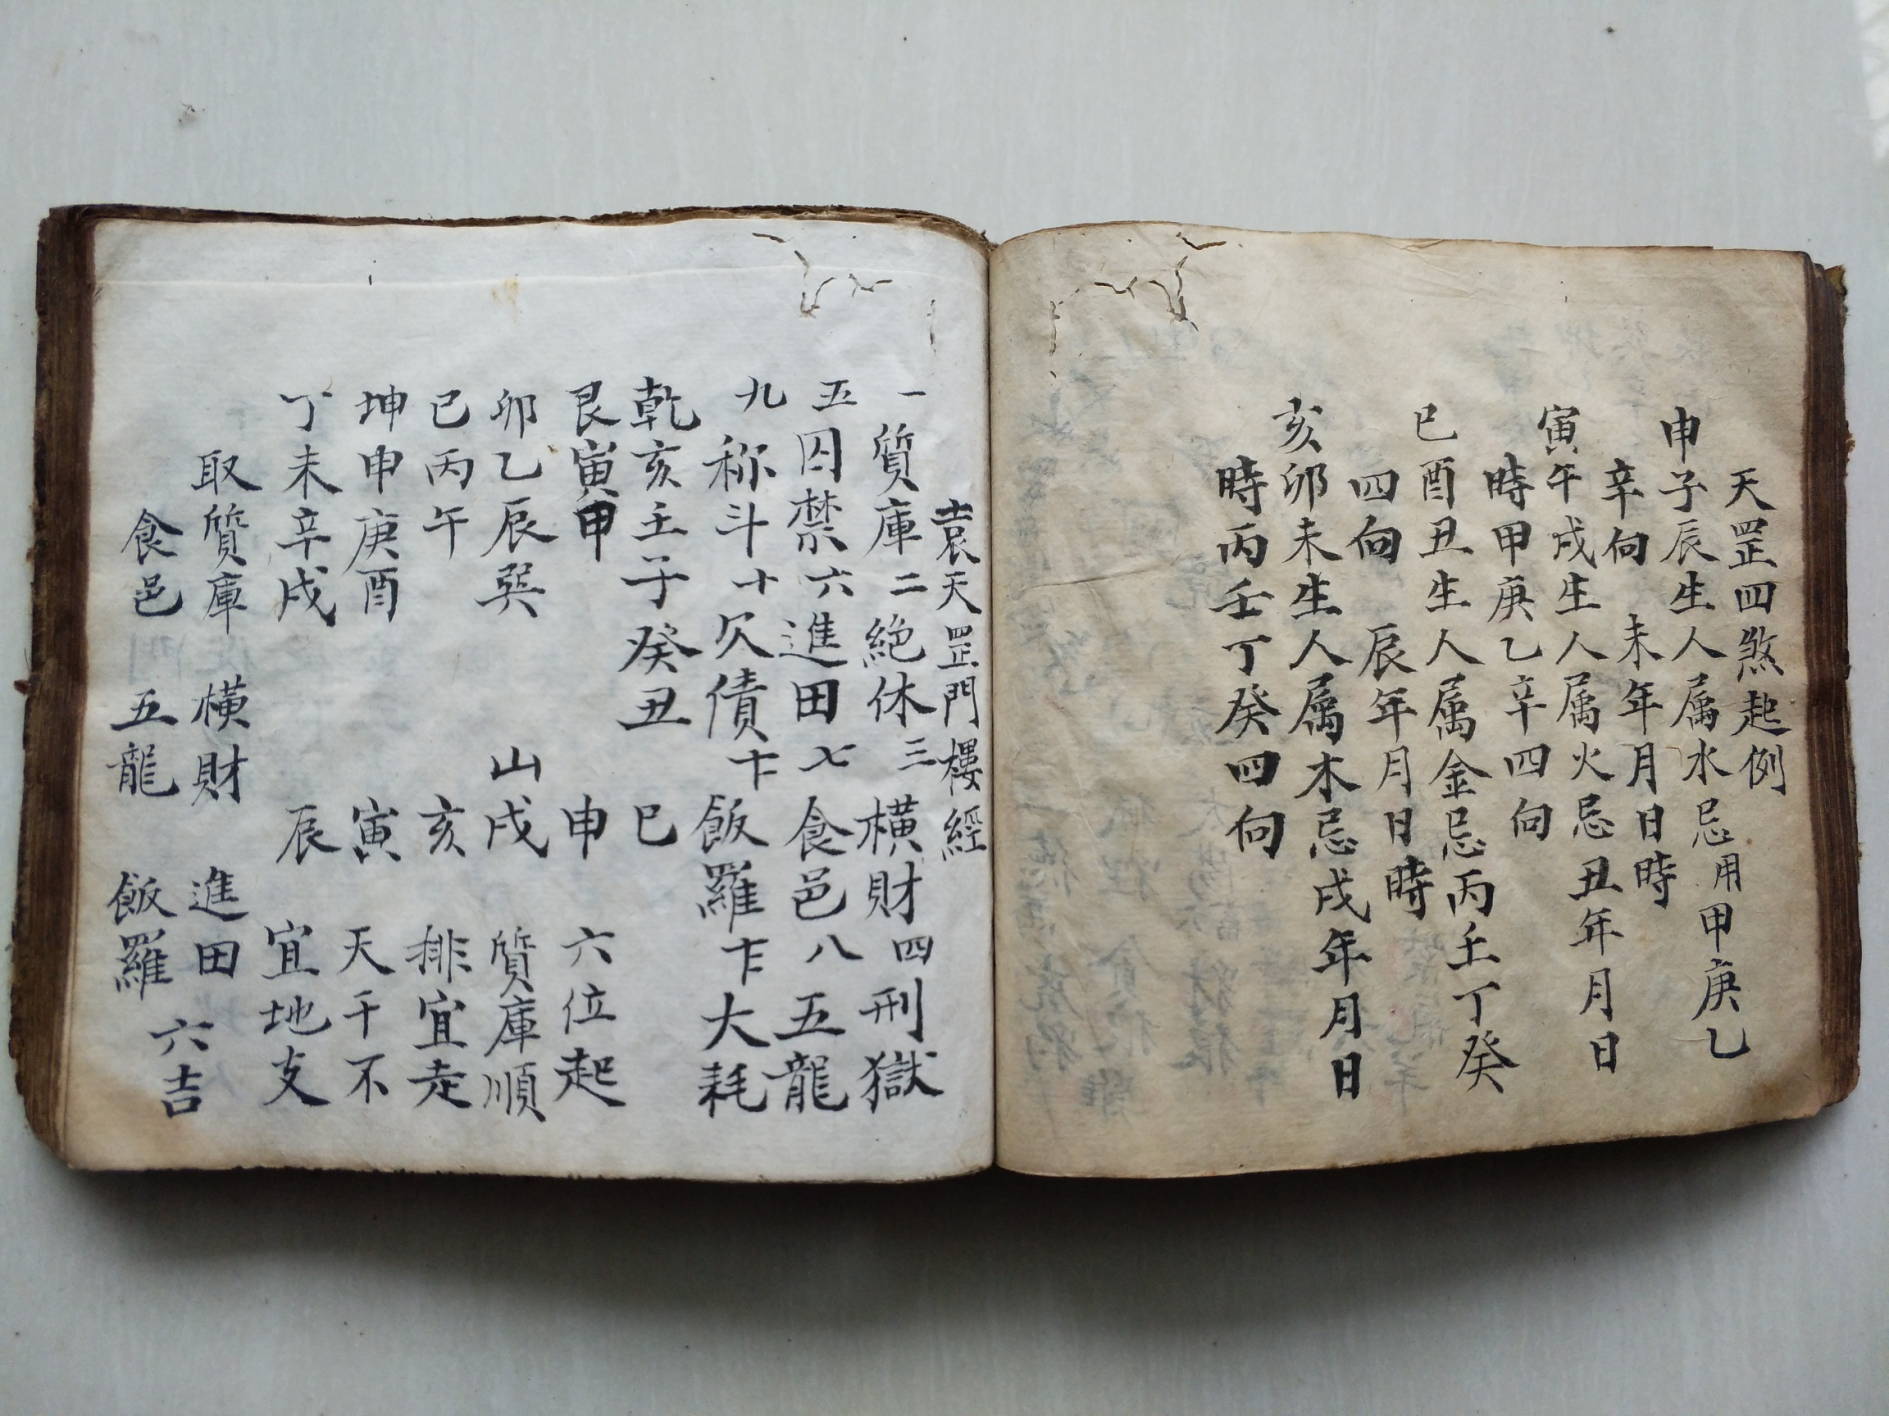 天罡四煞起例
申子辰生人属水忌用甲庚乙
辛向 未年月日時
寅午戌生人属火忌丑年月日
時甲庚乙辛四向
巳酉丑生人属金忌丙壬丁癸
四向 辰年月日時
亥卯未生人属木忌戌年月日
時丙壬丁癸四向
袁天罡門樓經
一質庫二絕休三橫財四刑獄
五囚禁六進田七食邑八五龍
九称斗十欠债卞飯羅卞大耗
乾亥壬子癸丑 巳
艮寅甲 申 六位起
卯乙辰巽 山戌 質庫順
巳丙午 亥 排宜走
坤申庚酉 寅 天干不
丁未辛戌 辰 宜地支
取質庫 橫財 進田
食邑 五龍 飯羅 六吉